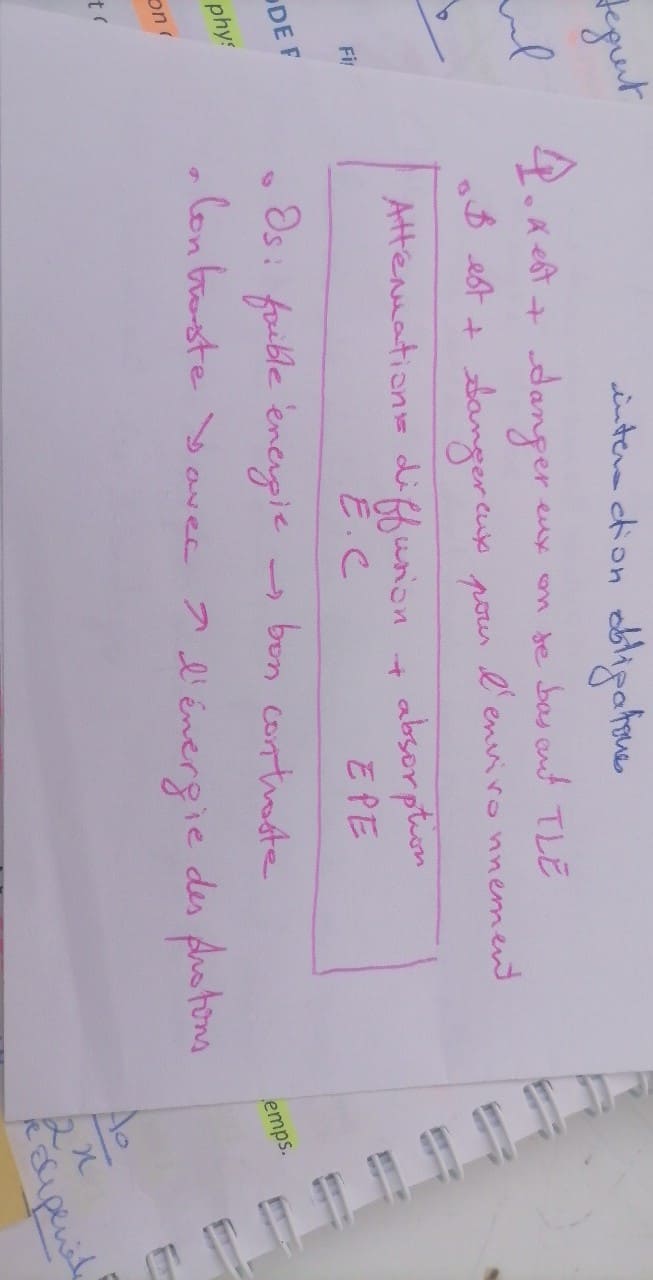 interaction obligatoire
. α est + dangereux en se basant TLE
. β est + dangereux pour l'environnement
Atténuation = diffusion + absorption
E.C EPE
• Os : faible énergie → bon contraste
• Contraste ↘ avec ↗ l'énergie des photons
emps.
phys
ODE
Fi
on
t
2